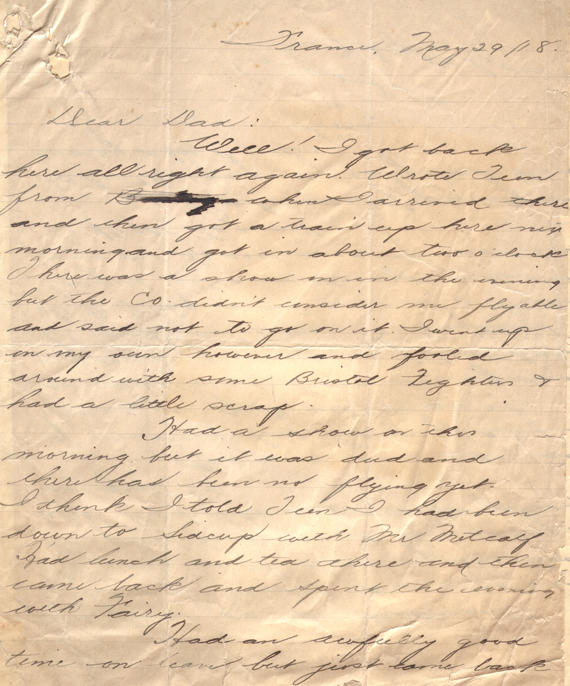 France, May 29/18.
Dear Dad:
Well! I got back
here all right again. Wrote Teen
from when I arrived there
and then got a train up here nex
morning and got in about two o'clock
There was a show on in the evening
but the C.O. didn't consider me flyable
and said not to go on it. I went up
on my own however and fooled
around with some Bristol Fighters &
had a little scrap.
Had a show on this
morning but it was dud and
there has been no flying yet.
I think I told Teen I had been
down to Sidcup with Mr Metcalf
Had lunch and tea there and then
came back and spent the evening
with Fairy.
Had an awfully good
time on leave but just came back